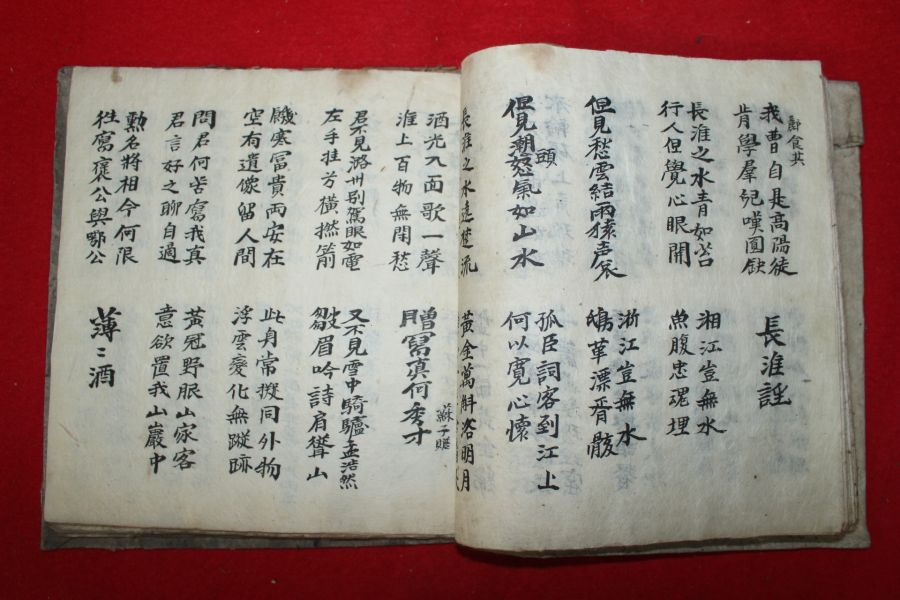 我曹自是高陽徒
酈食其
肯學羣兒嘆圓缺
長淮謠
長淮之水青如苔
行人但覺心眼開
湘江豈無水
魚腹忠魂埋
但見愁雲結雨猿声哀
浙江豈無水
鴟革漂胥骸
但見潮頭怒氣如山水
孤臣詞客到江上
何以寬心懷
長淮之水遶楚流
黃金萬斛浴明月
酒光入面歌一聲
淮上百物無閑愁
贈寫真何秀才
蘇子瞻
君不見潞州別駕眼如電
左手挂弓橫撚箭
又不見雪中騎驢孟浩然
皺眉吟詩肩聳山
饑寒富貴兩安在
空有遺像留人間
此身常擬同外物
浮雲變化無蹤跡
問君何苦寫我真
君言好之聊自適
黃冠野服山家客
意欲置我山巖中
勲名將相今何限
徃寫褒公與鄂公
薄〻酒